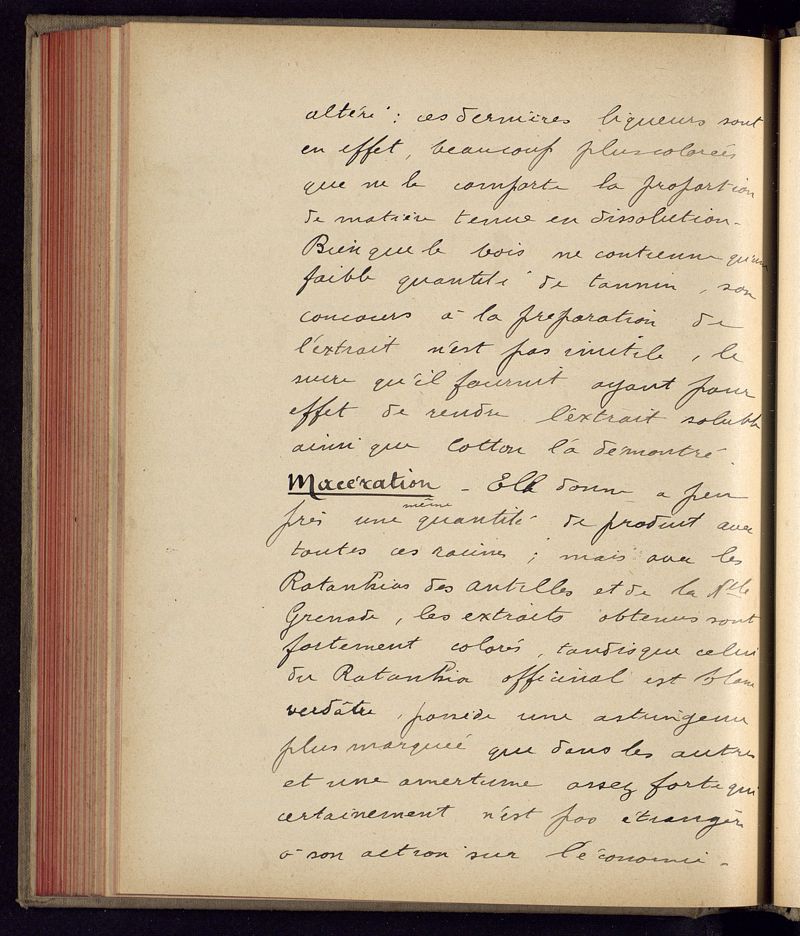 altéré : ces dernières liqueurs sont
en effet, beaucoup plus colorées
que ne le comporte la proportion
de matière tenue en dissolution -
Bien que le bois ne contienne qu'une
faible quantité de tannin, son
concours à la préparation de
l'extrait n'est pas inutile, le
sucre qu'il fournit ayant pour
effet de rendre l'extrait soluble
ainsi que Cotton l'a démontré.
Macération - Elle donne a peu
près une même quantité de produit avec
toutes ces racines ; mais avec les
Ratanhias des Antilles et de la Nlle
Grenade, les extraits obtenus sont
fortement colorés, tandis que celui
du Ratanhia officinal est blanc
verdâtre, possède une astringence
plus marquée que dans les autres
et une amertume assez forte qui
certainement n'est pas étrangère
à son action sur l'économie -